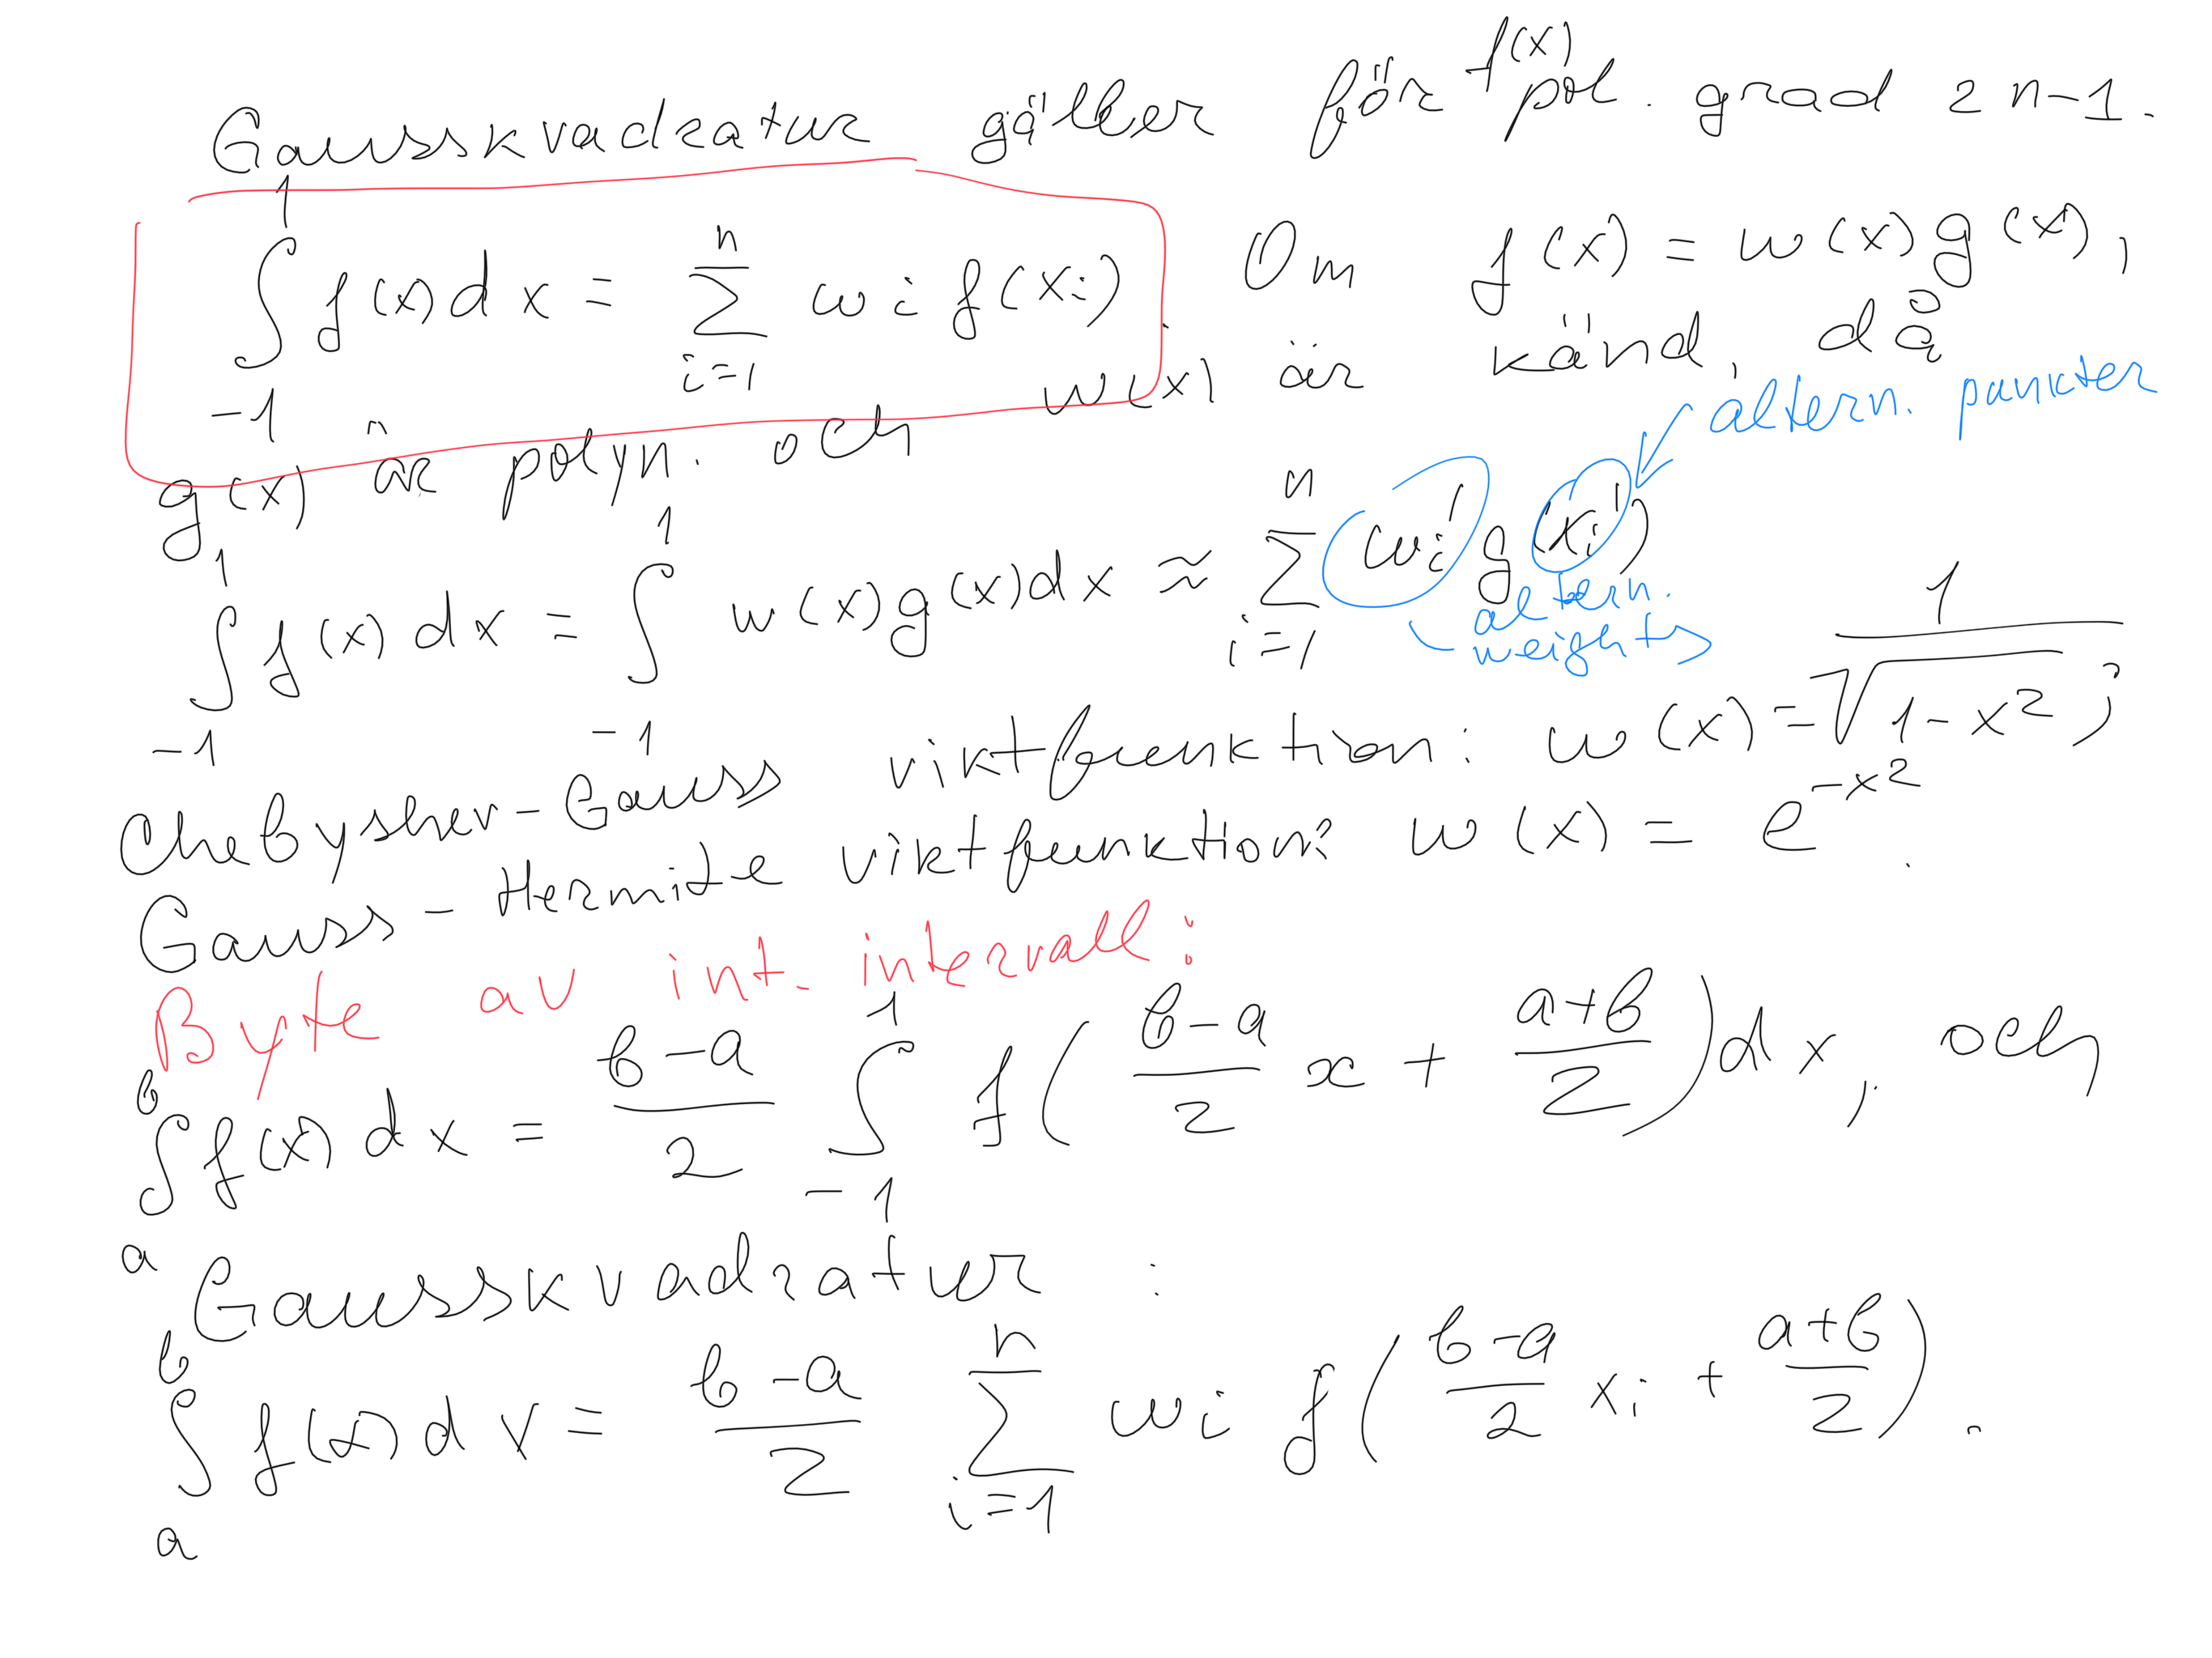 Gausskvadratur gäller för f(x) pol. grad 2n-1.
∫_{-1}^{1} f(x)dx = ∑_{i=1}^{n} wi f(xi). Om f(x) = w(x)g(x),
g(x) är polyn. och w(x) är känd, då
altern. punkter
∫_{-1}^{1} f(x)dx = ∫_{-1}^{1} w(x)g(x)dx ≈ ∑_{i=1}^{n} wi' g(xi')
altern. weights
Chebyshev-Gauss viktfunktion: w(x) = 1/√(1-x²);
Gauss-Hermite viktfunktion: w(x) = e^{-x²}.
Byte av int. intervall:
∫_{a}^{b} f(x)dx = (b-a)/2 ∫_{-1}^{1} f((b-a)/2 x + (a+b)/2)dx, och
Gausskvadratur:
∫_{a}^{b} f(x)dx = (b-a)/2 ∑_{i=1}^{n} wi f((b-a)/2 xi + (a+b)/2).